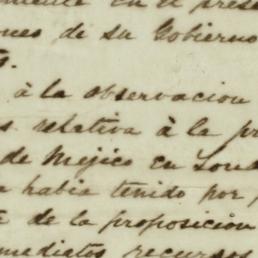 en el prese
ones de su Gobierno
à la observacion
s relativa à la pr
de Mejico en Lond
a habia tenido por
de la proposicion
mediatos recursos